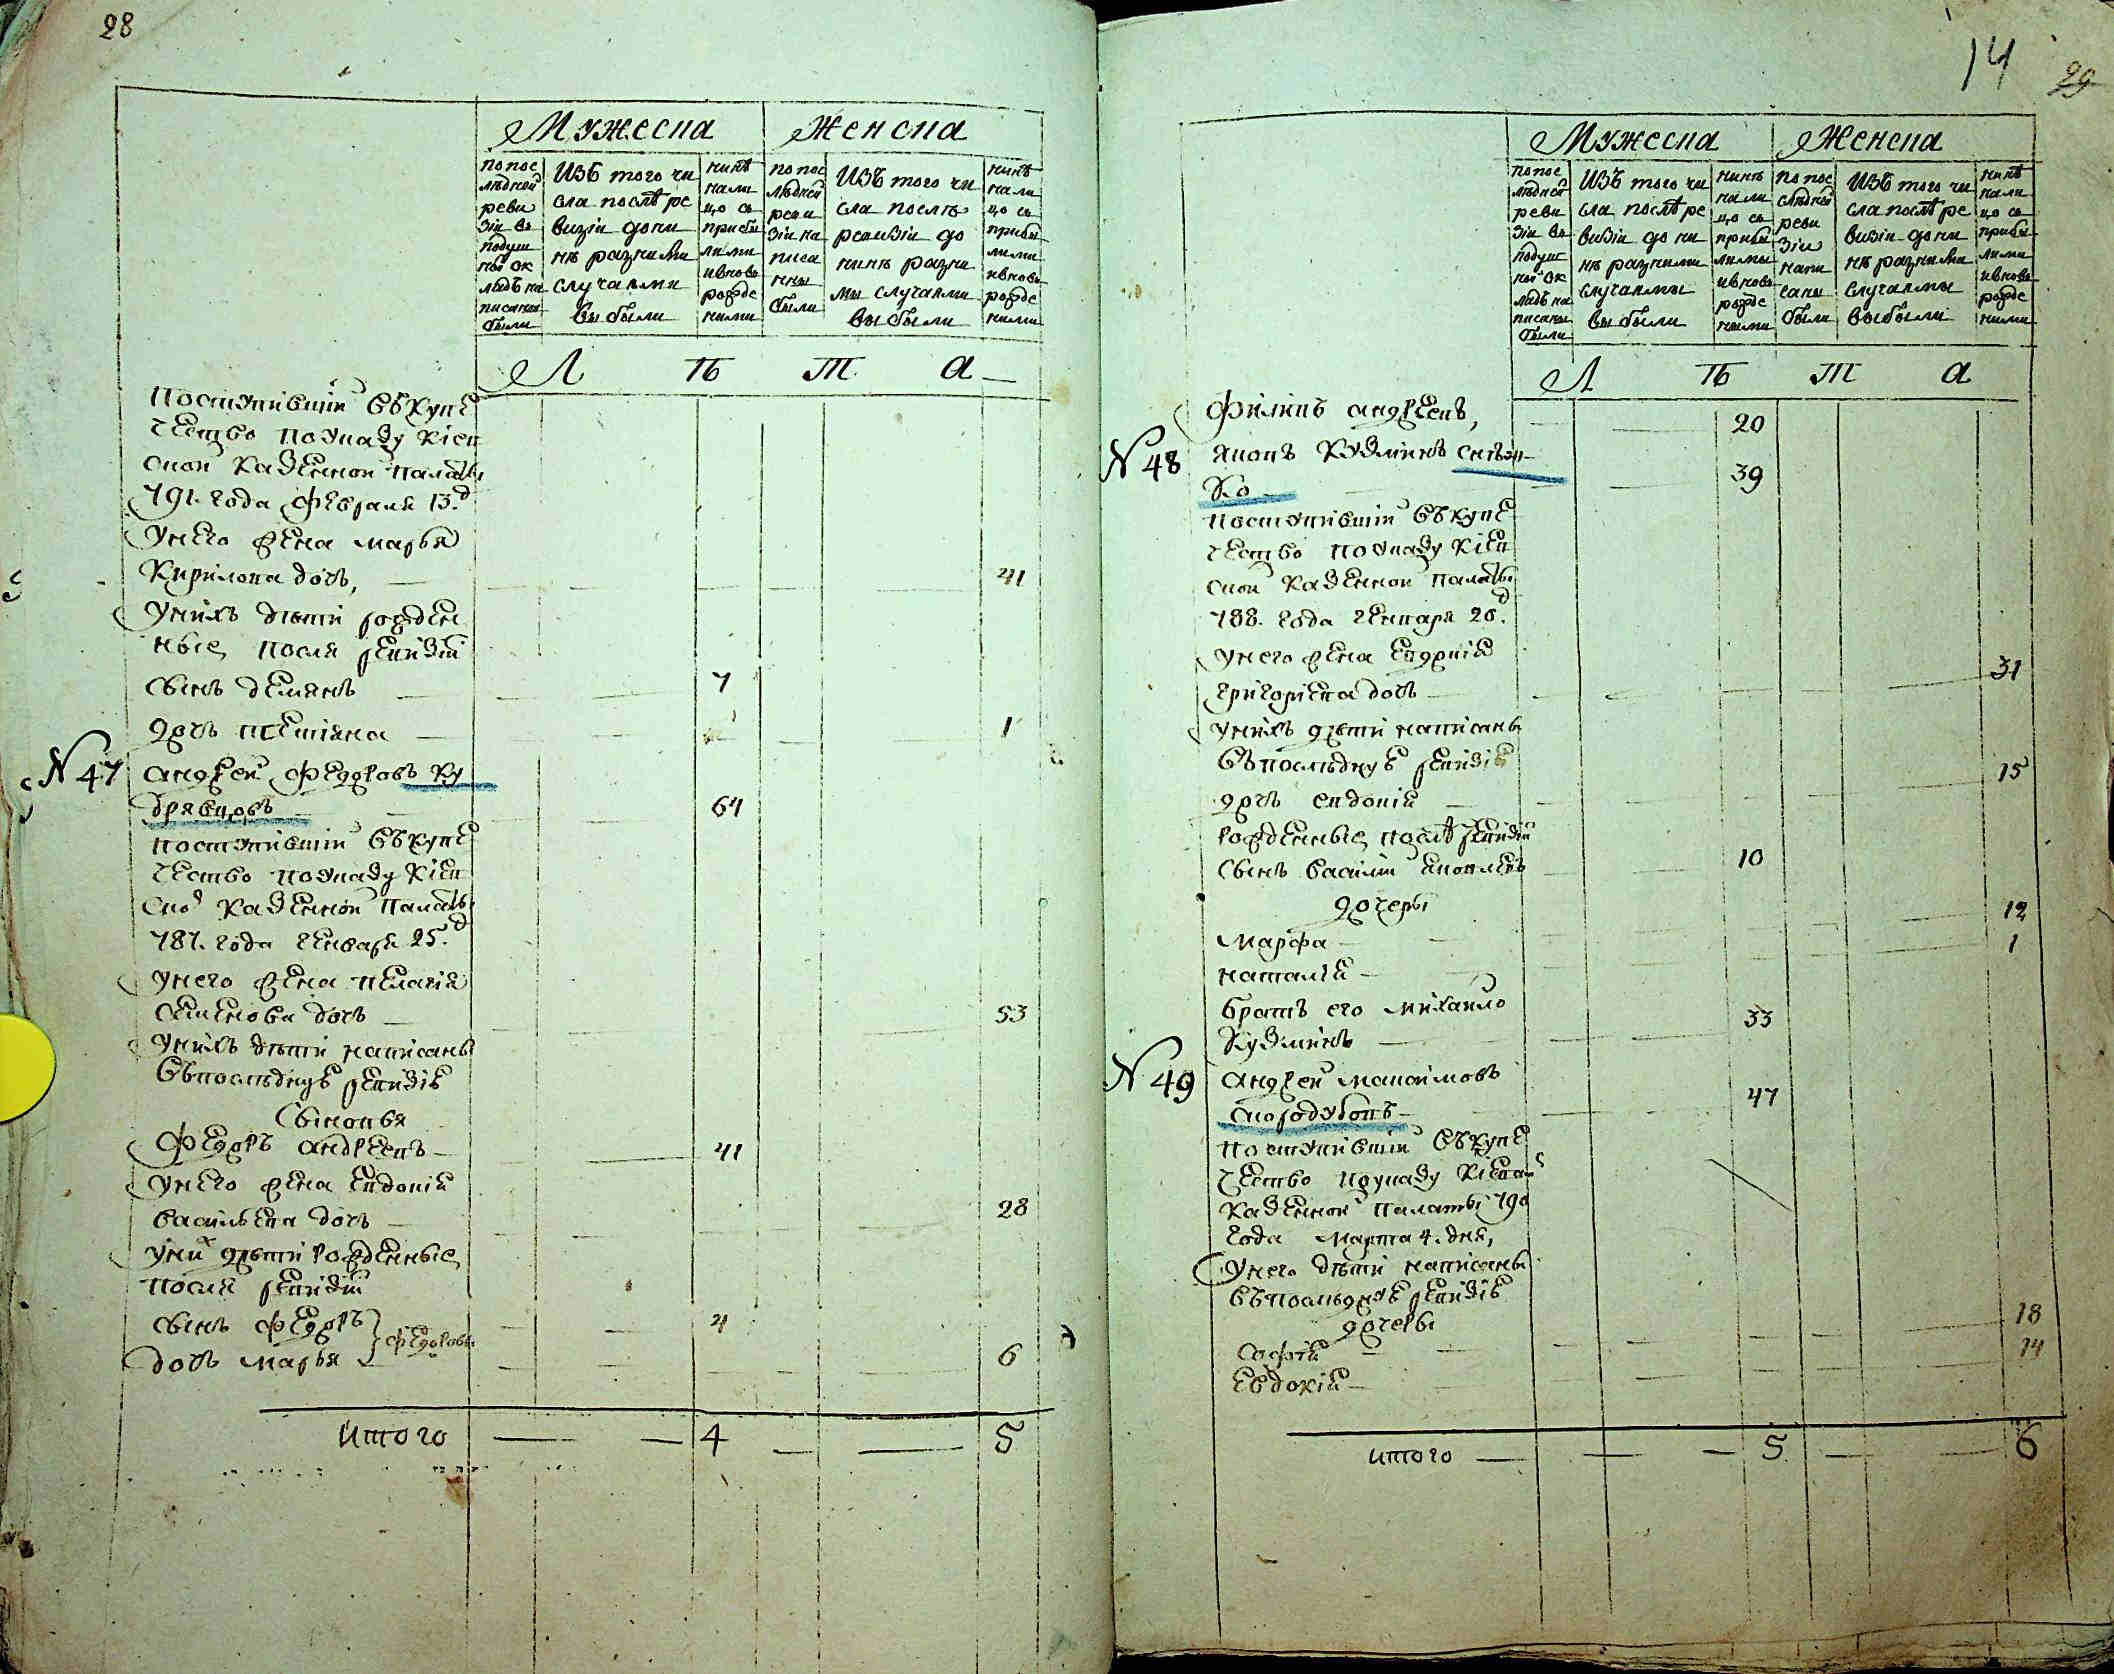 28
Мужеска
Женска
по пос
лѣдней
реви
зіи въ
подуш
ной ок
ладъ на
писаны
были
Изъ того чи
сла послѣ ре
визіи до ны
нѣ разными
случаями
выбыли
нынѣ
на ли
цо съ
прибы
лыми
и вновь
рожде
ными
по пос
лѣдней
реви
зіи на
писа
ны
были
Изъ того чи
сла послѣ
ревизіи до
нынѣ разны
мы случаями
выбыли
нынѣ
на ли
цо съ
прибы
лыми
и вновь
рожде
ными
Л ѣ т а
поступившій въ купе
чество по указу кіев
ской казенной палаты
791. года февраля 13.д
у него жена марья
Кирилова дочь, 41
у нихъ дѣти рожден
ные после ревизіи
сынъ демянъ 7
дочь тетіяна 1
N 47 андрей федоровъ ку
дрявцовъ 64
поступившій въ купе
чество по указу кіев
ской казенной палаты
787. года генваря 25.д
у него жена пелагія
семенова дочь 53
у нихъ дѣти написаны
въ последнѣе ревизіѣ
сыновья
федоръ андреевъ 41
у него жена евдокія
васильева дочь 28
у них дѣти рожденные
после ревизіи
сынъ федоръ 4
дочь марья федоровы 6
итого 4 5
14 29
Мужеска
Женска
по пос
лѣдней
реви
зіи въ
подуш
ной ок
ладъ на
писаны
были
Изъ того чи
сла послѣ ре
визіи до ны
нѣ разными
случаямы
выбыли
нынѣ
на ли
цо съ
прибы
лымы
и вновь
рожде
ными
по пос
лѣдней
реви
зіи
напи
саны
были
Изъ того чи
сла послѣ ре
визіи до ны
нѣ разными
случаямы
выбыли
нынѣ
на ли
цо съ
прибы
лыми
и вновь
рожде
ными
Л ѣ т а
филипъ андреевъ, 20
N 48 яковъ кузминъ
39
поступившій въ купе
чество по указу кіев
ской казенной палаты
788. года генваря 26.д
у него жена евдокія
григориева дочь 31
у нихъ дѣти написаны
въ последнуѣ ревизіѣ
дочь евдокія 15
рожденные послѣ ревизіи
сынъ василій яковлевъ 10
дочеры
марфа 12
наталія 1
братъ его михайло
кузминъ 33
N 49 андрей максимовъ
скородубовъ 47
поступившій въ купе
чество по указу кіевской
казенной палаты 790
года марта 4. дня,
у него дѣти написаны
въ последнуѣ ревизіѣ
дочеры
софія 18
евдокія 14
итого 5 6